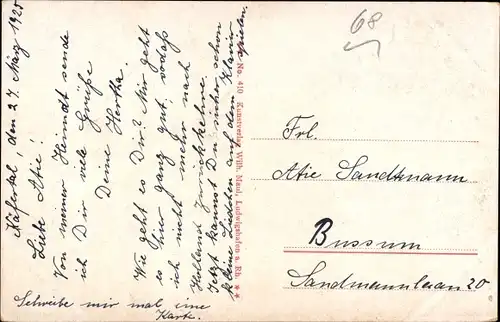 Käfertal, den 27. März 1925
Liebe Atie!
Von meiner Heimat sende
ich Dir viele Grüße
Deine Hertha.
Wie geht es Dir? Mir geht
es hier ganz gut, sodaß
ich nicht mehr nach
Holland zurückkehre.
Jetzt kannst Du sicher schon
kleine Liedlein auf dem Klavier
spielen.
Schreibe mir mal eine
Karte.
No. 410 Kunstverlag Wilh. Maul, Ludwigshafen a. Rh.
68
Frl.
Atie Sandtmann
Bussum
Sandmannlaan 20